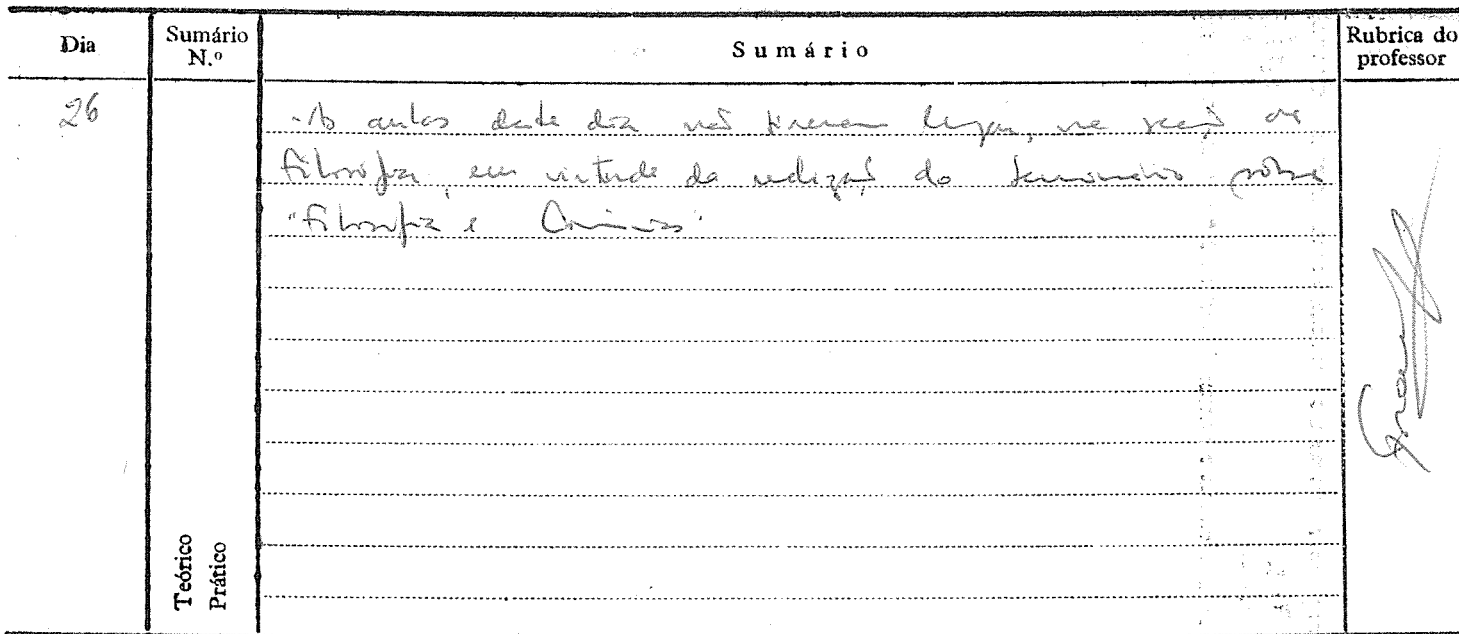 Dia
Sumário N.º
Sumário
Rubrica do professor
26
As aulas deste dia não tiveram lugar, na secção de
Filosofia, em virtude da realização do Seminário sobre
"Filosofia e Ciências"
Teórico
Prático